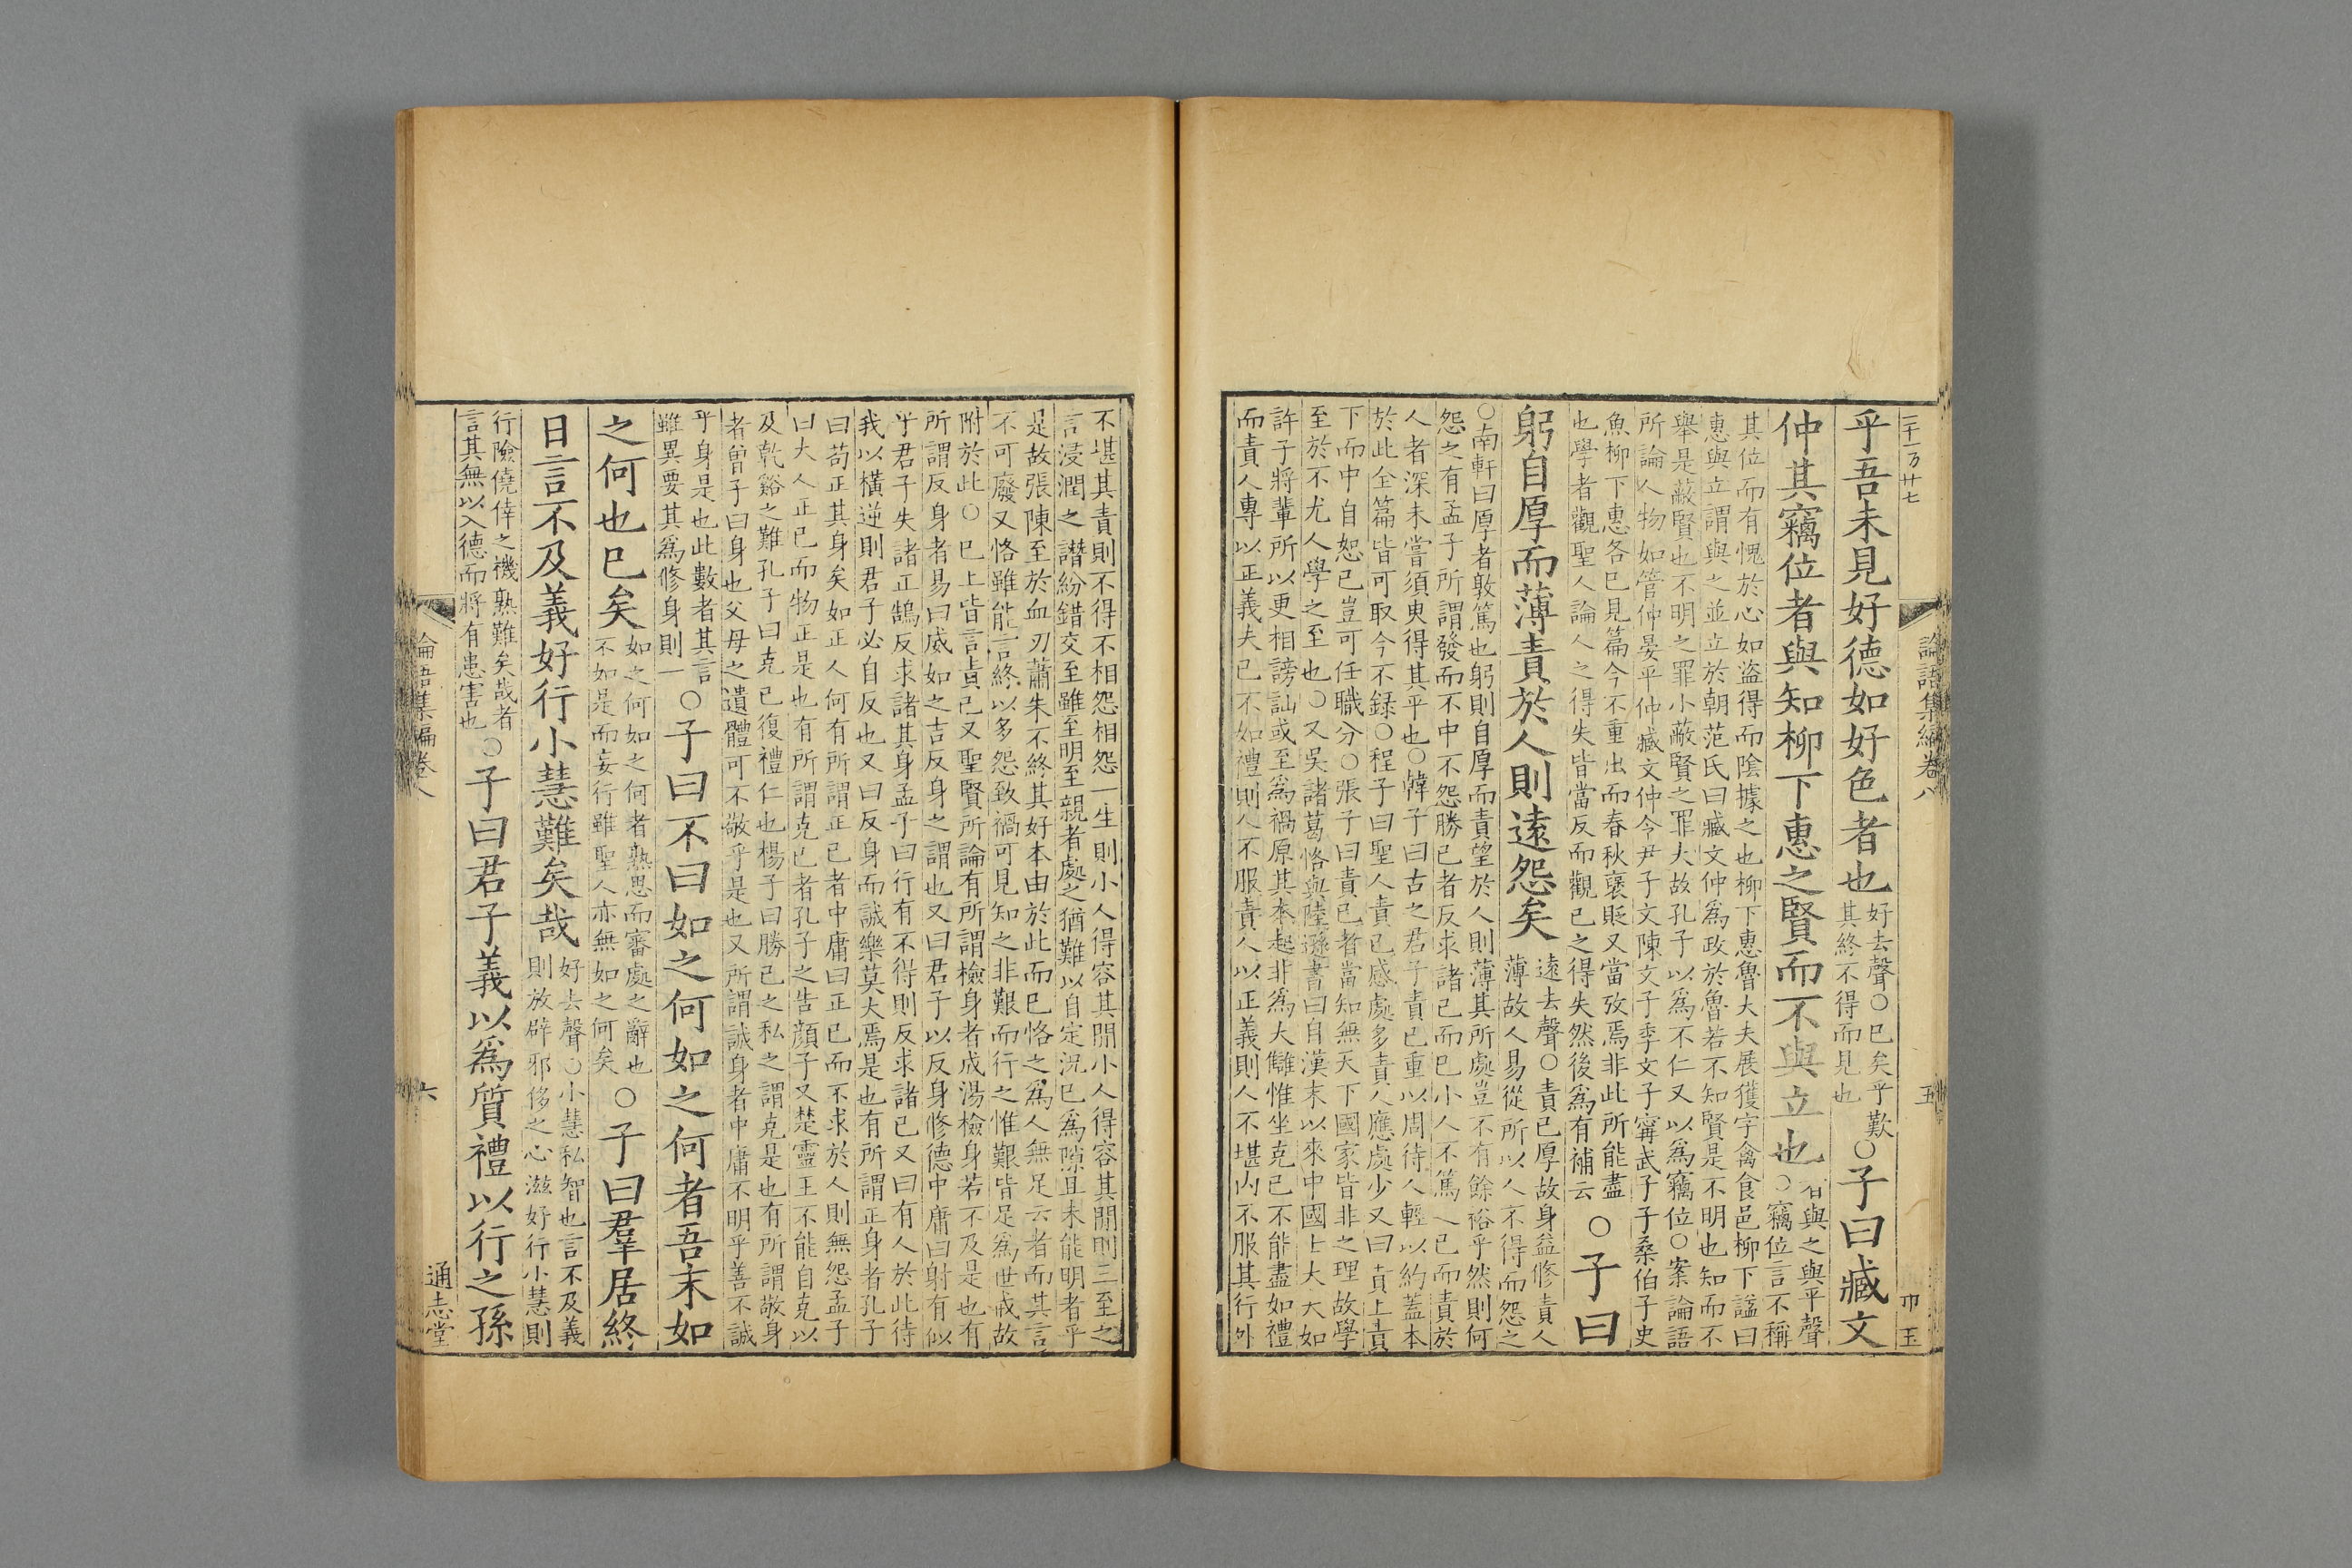 二十一万廿七
論語集編卷八
五
巾玉
乎吾未見好德如好色者也
好去聲〇巳矣乎歎
其終不得而見也
〇子曰臧文
仲其竊位者與知柳下惠之賢而不與立也
者與之與平聲
〇竊位言不稱
其位而有愧於心如盗得而陰據之也柳下惠魯大夫展獲字禽食邑柳下諡曰
惠與立謂與之並立於朝范氏曰臧文仲爲政於魯若不知賢是不明也知而不
舉是蔽賢也不明之罪小蔽賢之罪大故孔子以爲不仁又以爲竊位〇案論語
所論人物如管仲晏平仲臧文仲令尹子文陳文子季文子甯武子子桑伯子史
魚柳下惠各巳見篇今不重出而春秋襃貶又當攷焉非此所能盡
也學者觀聖人論人之得失皆當反而觀巳之得失然後爲有補云
〇子曰
躬自厚而薄責於人則遠怨矣
遠去聲〇責已厚故身益修責人
薄故人易從所以人不得而怨之
〇南軒曰厚者敦篤也躬則自厚而責望於人則薄其所處豈不有餘裕乎然則何
怨之有孟子所謂發而不中不怨勝已者反求諸已而巳小人不篤〻已而責於
人者深未嘗須臾得其平也〇韓子曰古之君子責已重以周待人輕以約蓋本
於此全篇皆可取今不録〇程子曰聖人責已感處多責人應處少又曰責上責
下而中自恕已豈可任職分〇張子曰責已者當知無天下國家皆非之理故學
至於不尤人學之至也〇又吳諸葛恪與陸遜書曰自漢末以來中國士大夫如
許子將輩所以更相謗訕或至爲禍原其本起非爲大讎惟坐克已不能盡如禮
而責人專以正義夫已不如禮則人不服責人以正義則人不堪內不服其行外
不堪其責則不得不相怨相怨一生則小人得容其間小人得容其間則三至之
言浸潤之譖紛錯交至雖至明至親者處之猶難以自定況已爲隙且未能明者乎
是故張陳至於血刃蕭朱不終其好本由於此而已恪之爲人無足云者而其言
不可廢又恪雖能言終以多怨致禍可見知之非艱而行之惟艱皆足爲世戒故
附於此〇已上皆言責已又聖賢所論有所謂檢身者成湯檢身若不及是也有
所謂反身者易曰威如之吉反身之謂也又曰君子以反身修德中庸曰射有似
乎君子失諸正鵠反求諸其身孟子曰行有不得則反求諸已又曰有人於此待
我以橫逆則君子必自反也又曰反身而誠樂莫大焉是也有所謂正身者孔子
曰苟正其身矣如正人何有所謂正已者中庸曰正已而不求於人則無怨孟子
曰大人正已而物正是也有所謂克已者孔子之告顔子又楚靈王不能自克以
及乾谿之難孔子曰克已復禮仁也楊子曰勝已之私之謂克是也有所謂敬身
者曾子曰身也父母之遺體可不敬乎是也又所謂誠身者中庸不明乎善不誠
乎身是也此數者其言
雖異要其爲修身則一
〇子曰不曰如之何如之何者吾末如
之何也已矣
如之何如之何者熟思而審處之辭也
不如是而妄行雖聖人亦無如之何矣
〇子曰羣居終
日言不及義好行小慧難矣哉
好去聲〇小慧私智也言不及義
則放辟邪侈之心滋好行小慧則
行險僥倖之機熟難矣哉者
言其無以入德而將有患害也
〇子曰君子義以爲質禮以行之孫
論語集編卷八
六
通志堂